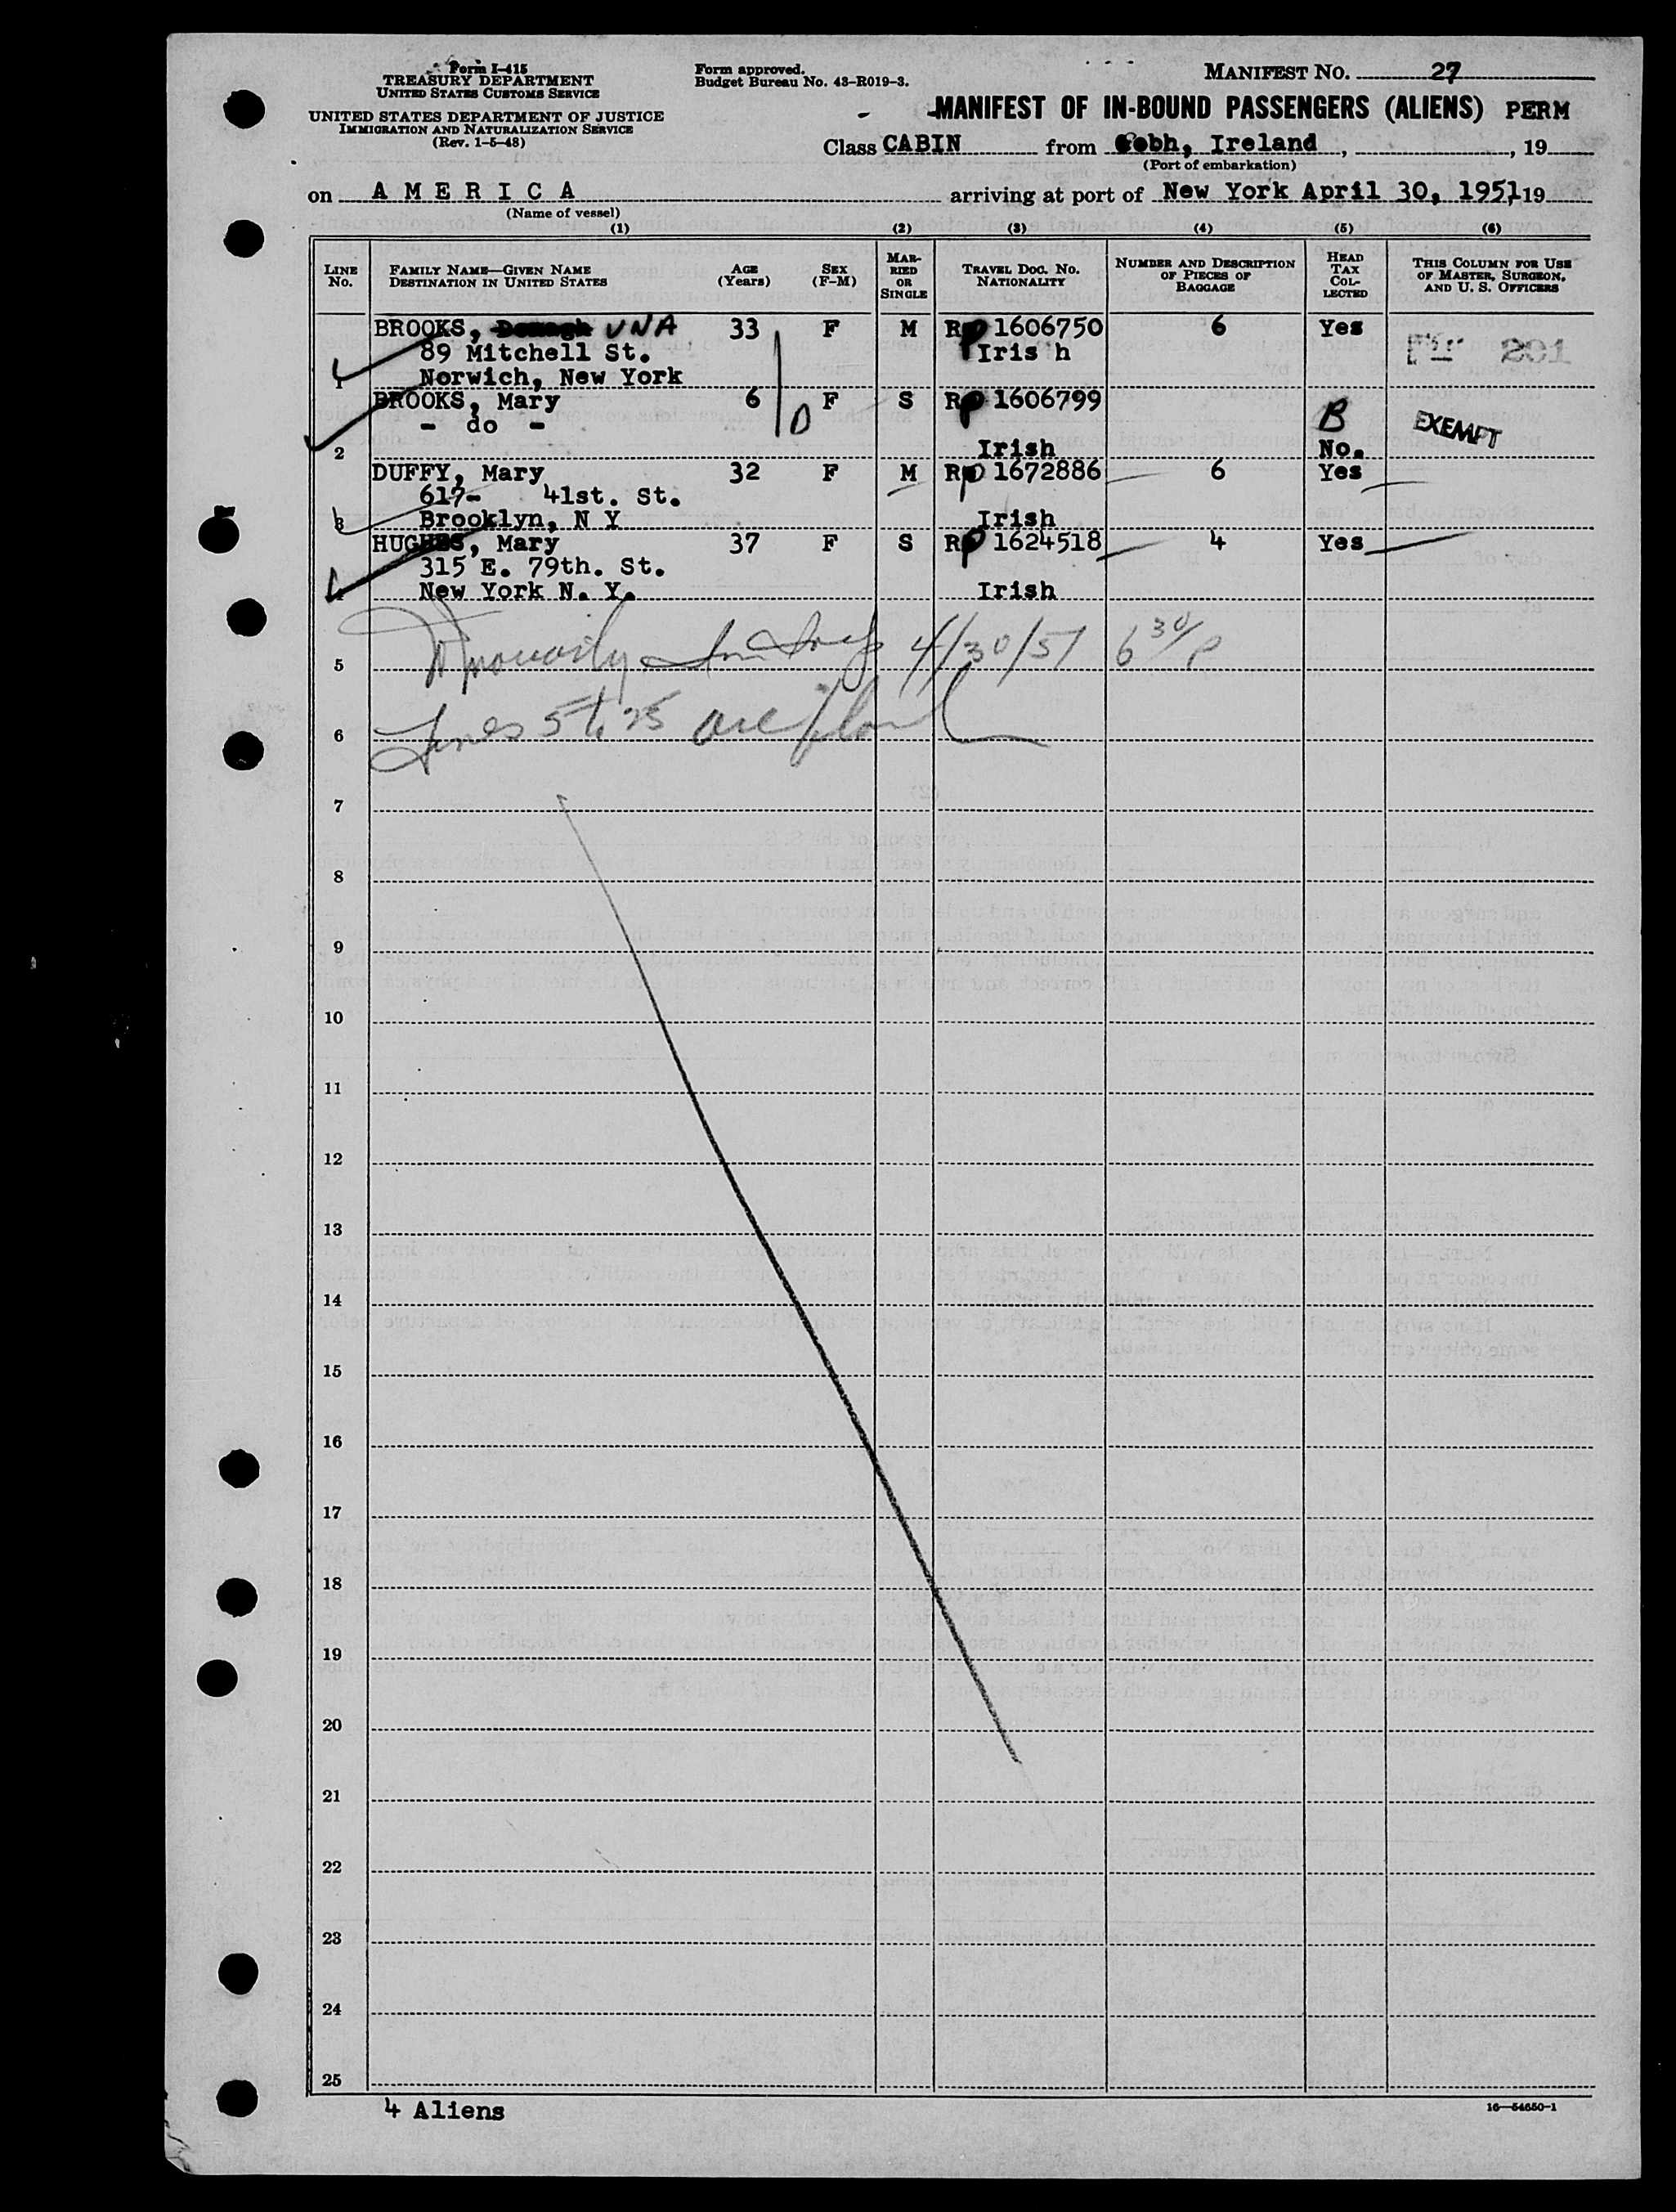 Form I-415
TREASURY DEPARTMENT
UNITED STATES CUSTOMS SERVICE
UNITED STATES DEPARTMENT OF JUSTICE
IMMIGRATION AND NATURALIZATION SERVICE
(Rev. 1-5-48)
Form approved.
Budget Bureau No. 43-R019-3.
MANIFEST NO. 27
MANIFEST OF IN-BOUND PASSENGERS (ALIENS) PERM
Class CABIN from Cobh, Ireland, , 19
(Port of embarkation)
on A M E R I C A arriving at port of New York April 30, 1951, 19
(Name of vessel)
(1) (2) (3) (4) (5) (6)
LINE No. FAMILY NAME—GIVEN NAME DESTINATION IN UNITED STATES AGE (Years) SEX (F-M) MARRIED OR SINGLE TRAVEL DOC. NO. NATIONALITY NUMBER AND DESCRIPTION OF PIECES OF BAGGAGE HEAD TAX COLLECTED THIS COLUMN FOR USE OF MASTER, SURGEON, AND U. S. OFFICERS
BROOKS, UNA 33 F M RP 1606750 6 Yes 201
89 Mitchell St. Iris h
1 Norwich, New York
BROOKS, Mary 6 F S RP 1606799
- do - D B EXEMPT
2 Irish No.
DUFFY, Mary 32 F M RP 1672886 6 Yes
617- 41st. St.
3 Brooklyn, N Y Irish
HUGHES, Mary 37 F S RP 1624518 4 Yes
315 E. 79th. St.
4 New York N. Y. Irish
5 4/30/51 6 30/P
6 Lines 5 to 25 are blank
7
8
9
10
11
12
13
14
15
16
17
18
19
20
21
22
23
24
25
4 Aliens
16—54650-1